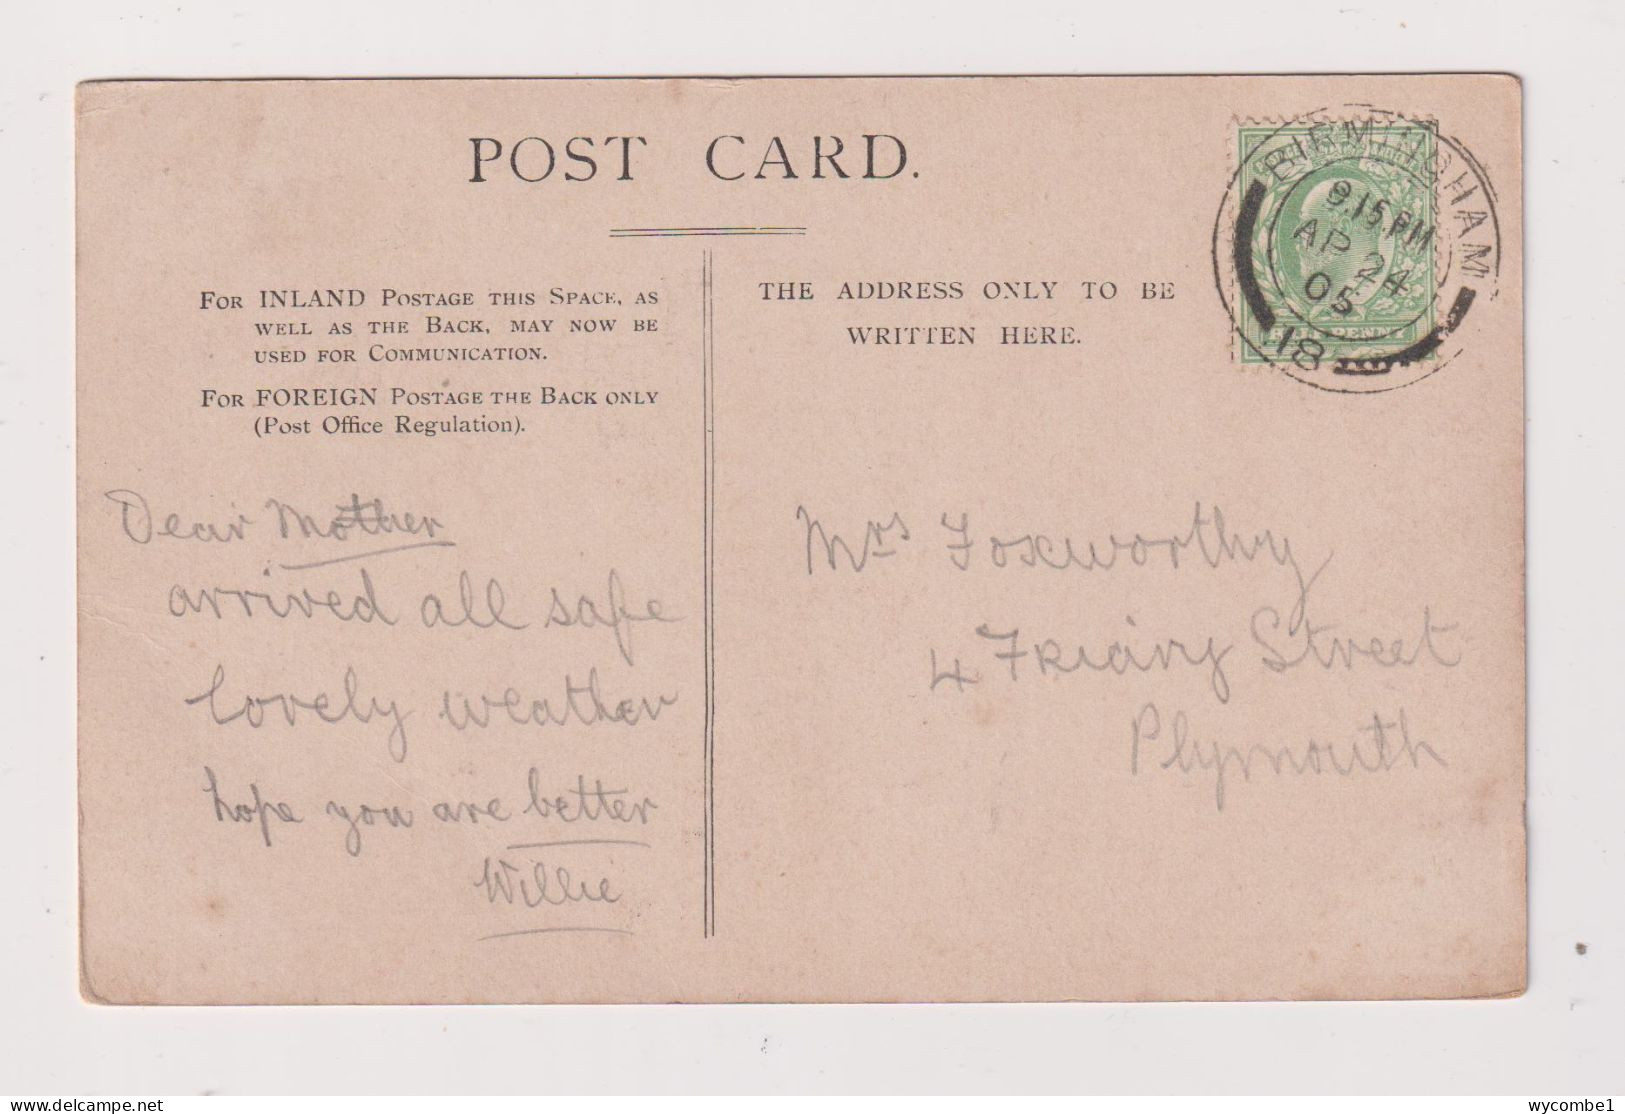 POST CARD.
FOR INLAND POSTAGE THIS SPACE, AS
WELL AS THE BACK, MAY NOW BE
USED FOR COMMUNICATION.
FOR FOREIGN POSTAGE THE BACK ONLY
(Post Office Regulation).
THE ADDRESS ONLY TO BE
WRITTEN HERE.
BIRMINGHAM
9.15 PM
AP 24
05
18
Dear Mother
arrived all safe
lovely weather
hope you are better
Willie
Mrs Foxworthy
4 Friary Street
Plymouth
wycombe1